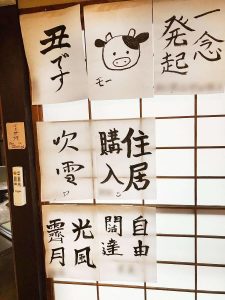 一念
発起
モー
丑です
住居
購入
吹雪
自由
闊達
光風
霽月